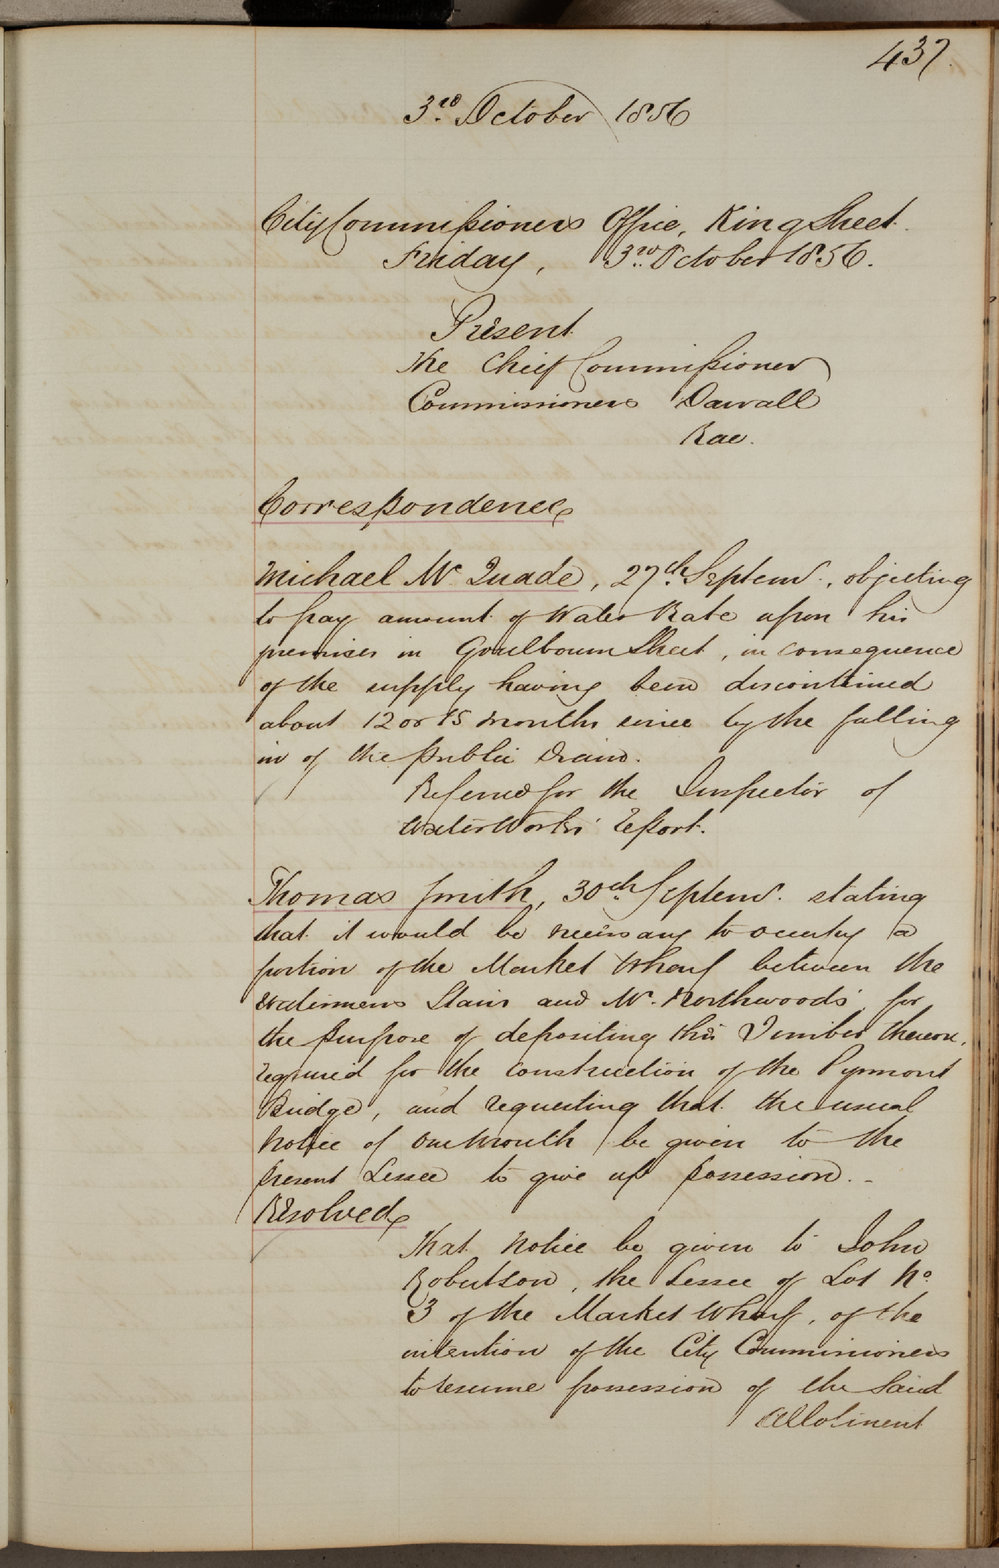 437.
3rd October 1856
City Commissioners Office, King Street.
Friday, 3rd October 1856.
Present
The Chief Commissioner
Commissioners Darvall
Rae.
Correspondence
Michael Mc Quade, 27th Septemr., objecting
to pay amount of Water Rate upon his
premises in Goulbourn Street, in consequence
of the supply having been discontinued
about 12 or 15 months since by the falling
in of the public Drain.
Referred for the Inspector of
Water Works' Report.
Thomas Smith, 30th Septemr. stating
that it would be necessary to occupy a
portion of the Market Wharf between the
Watermens Stairs and Mr. Northwoods' for
the purpose of depositing this Timber thereon,
required for the construction of the Pyrmont
Bridge, and requesting that the usual
Notice of One Month be given to the
present Lessee to give up possession.
Resolved
That Notice be given to John
Robertson, the Lessee of Lot No.
3 of the Market Wharf, of the
intention of the City Commissioners
to resume possession of the Said
Allotment